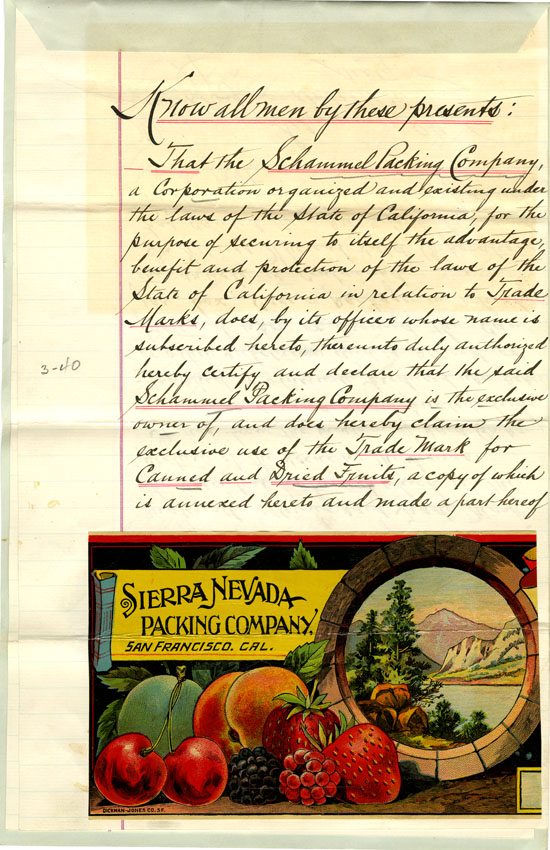 Know all men by these presents:
That the Schammel Packing Company,
a Corporation organized and existing under
the laws of the State of California, for the
purpose of securing to itself the advantage,
benefit and protection of the laws of the
State of California in relation to Trade
Marks, does, by its officer whose name is
subscribed hereto, thereunto duly authorized
hereby certify and declare that the said
Schammel Packing Company is the exclusive
owner of, and does hereby claim the
exclusive use of the Trade Mark for
Canned and Dried Fruits, a copy of which
is annexed hereto and made a part hereof
3-40
SIERRA NEVADA
PACKING COMPANY,
SAN FRANCISCO, CAL.
DICKMAN-JONES CO. S.F.